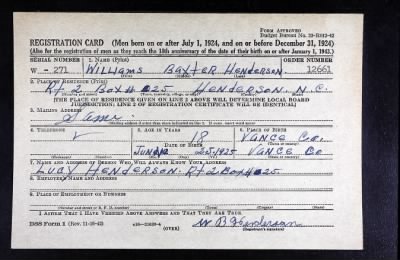 FORM APPROVED
Budget Bureau No. 33-R012-42
REGISTRATION CARD (Men born on or after July 1, 1924, and on or before December 31, 1924)
(Also for the registration of men as they reach the 18th anniversary of the date of their birth on or after January 1, 1943.)
SERIAL NUMBER 1. NAME (Print) ORDER NUMBER
W - 271 WILLIAMS BAXTER HENDERSON. 12661
2. PLACE OF RESIDENCE (Print)
Rt 2 Box# 025 HENDERSON. N.C.
[THE PLACE OF RESIDENCE GIVEN ON LINE 2 ABOVE WILL DETERMINE LOCAL BOARD
JURISDICTION; LINE 2 OF REGISTRATION CERTIFICATE WILL BE IDENTICAL]
3. MAILING ADDRESS
Same
4. TELEPHONE 5. AGE IN YEARS 6. PLACE OF BIRTH
18 VANCE Co.
JUNE 2 1925 VANCE Co
7. NAME AND ADDRESS OF PERSON WHO WILL ALWAYS KNOW YOUR ADDRESS
LUCY HENDERSON. Rt 2 Box# 025
8. EMPLOYER'S NAME AND ADDRESS
9. PLACE OF EMPLOYMENT OR BUSINESS
I AFFIRM THAT I HAVE VERIFIED ABOVE ANSWERS AND THAT THEY ARE TRUE.
DSS Form 1 (Rev. 11-16-42) (OVER) W B Henderson
(Registrant's signature)